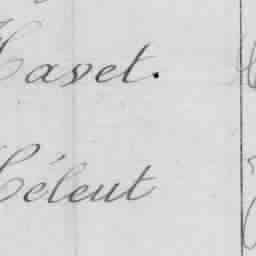 Havet.
Héleut